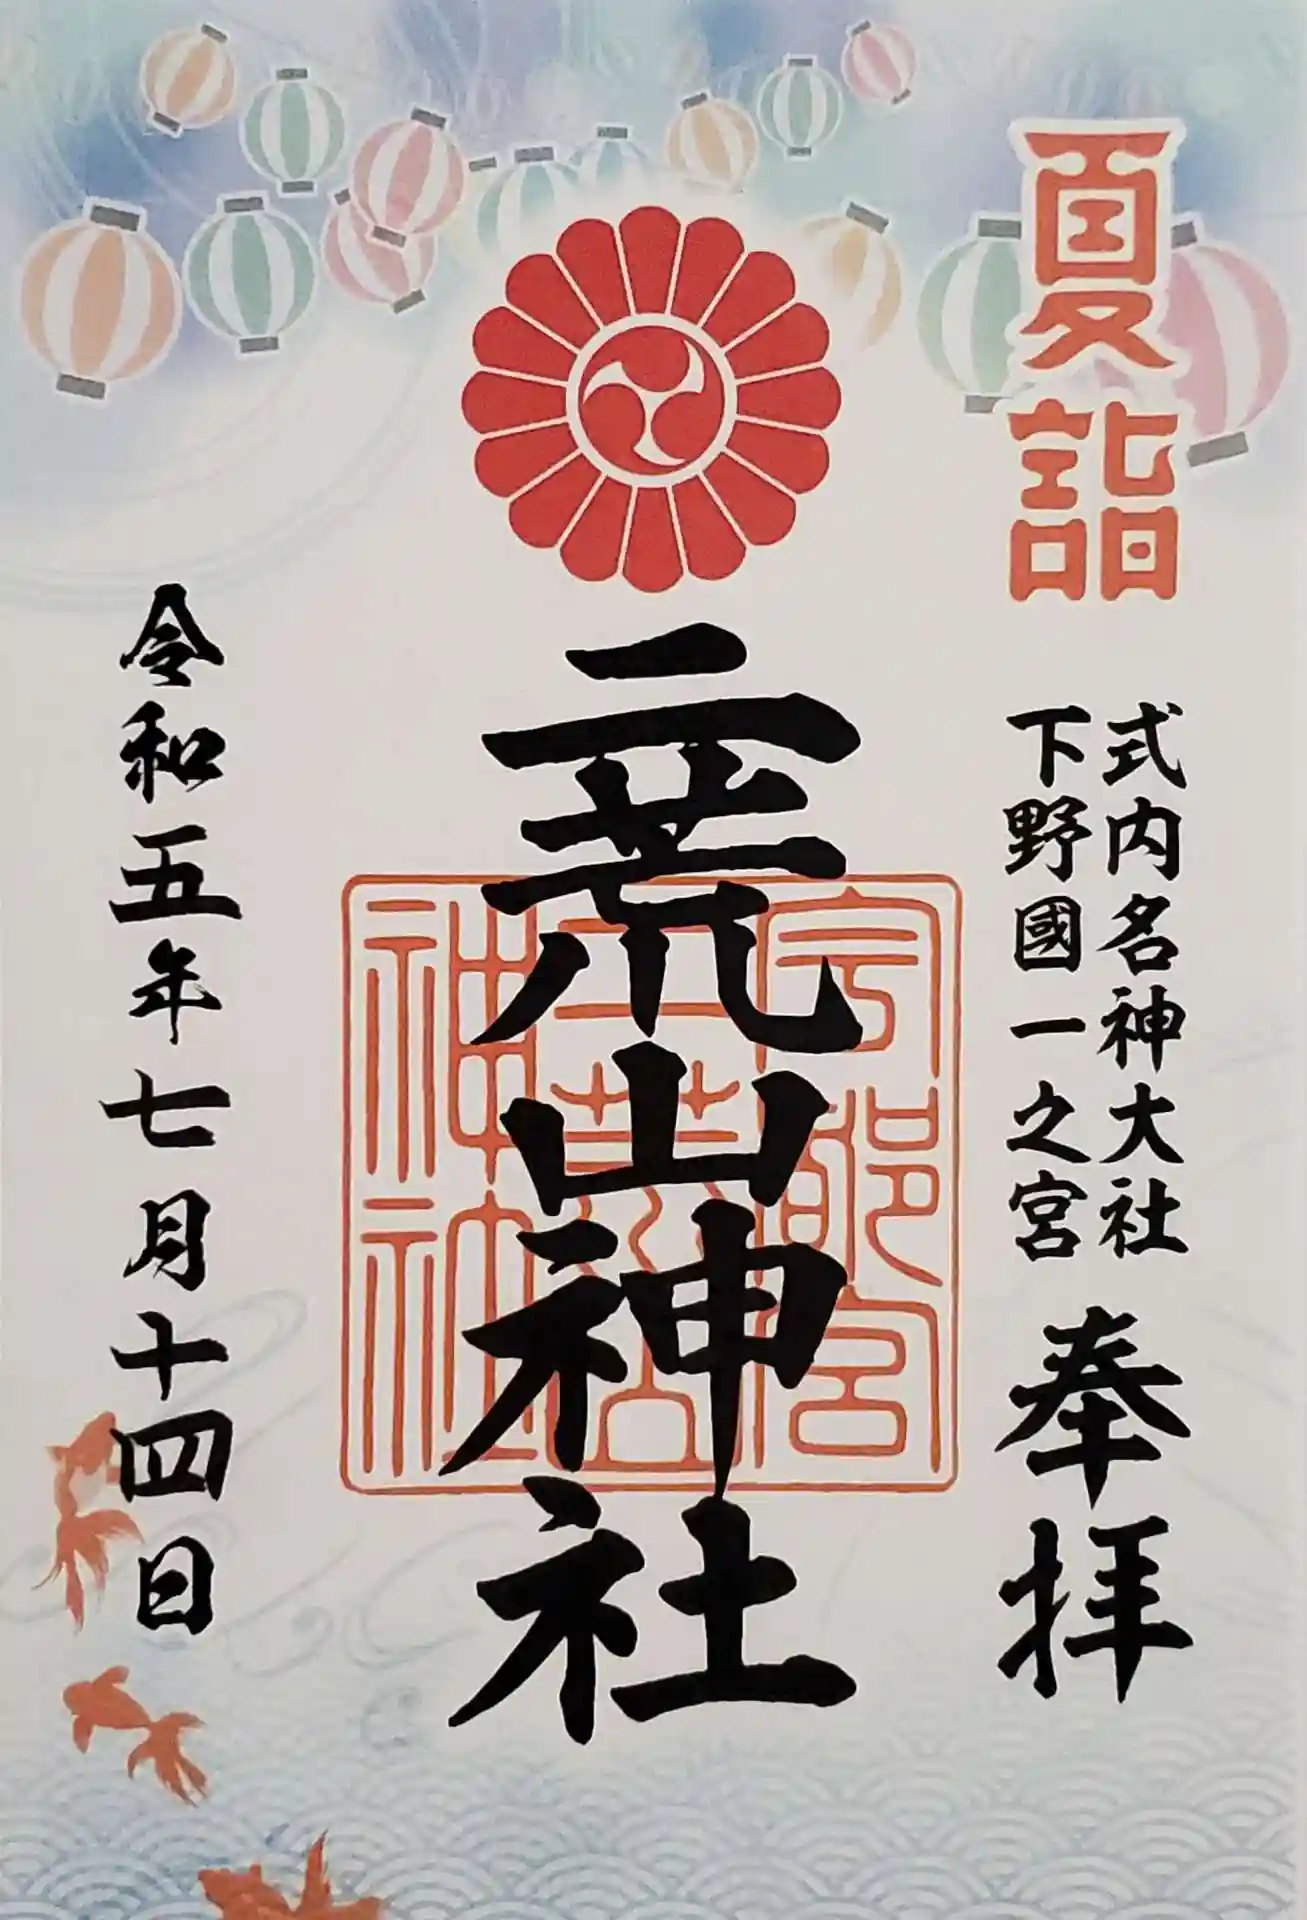 夏詣
式内名神大社
下野國一之宮
奉拝
二荒山神社
宇都宮
二荒山
神社
令和五年七月十四日